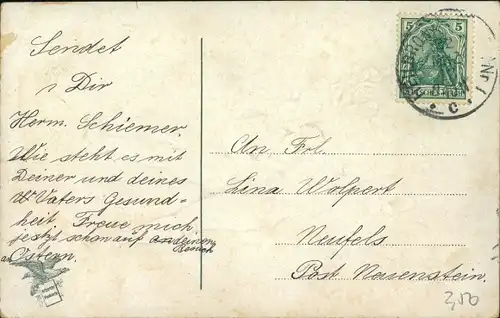 Sendet
Dir
Herm. Schiemer
Wie steht es mit
Deiner und deines
Vaters Gesund=
heit Freue mich
jetzt schon auf deinen
Besuch
an Ostern.
An Frl.
Lina Wolpert
Neufels
Post Neuenstein.
5 5
C
3,50